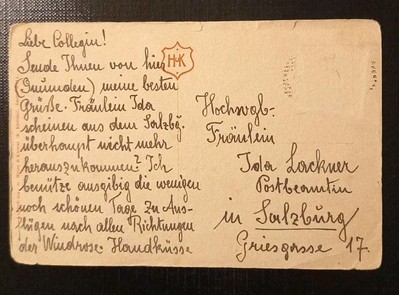 Liebe Collegin!
Sende Ihnen von hier
(Gmunden) meine besten
Grüße. Fräulein Ida
scheinen aus dem Salzbg.
überhaupt nicht mehr
herauszukommen? Ich
benütze ausgibig die wenigen
noch schönen Tage zu Aus-
flügen nach allen Richtungen
der Windrose. Handküsse
HK
Hochwgb.
Fräulein
Ida Lackner
Postbeamtin
in Salzburg
Griesgasse 17.